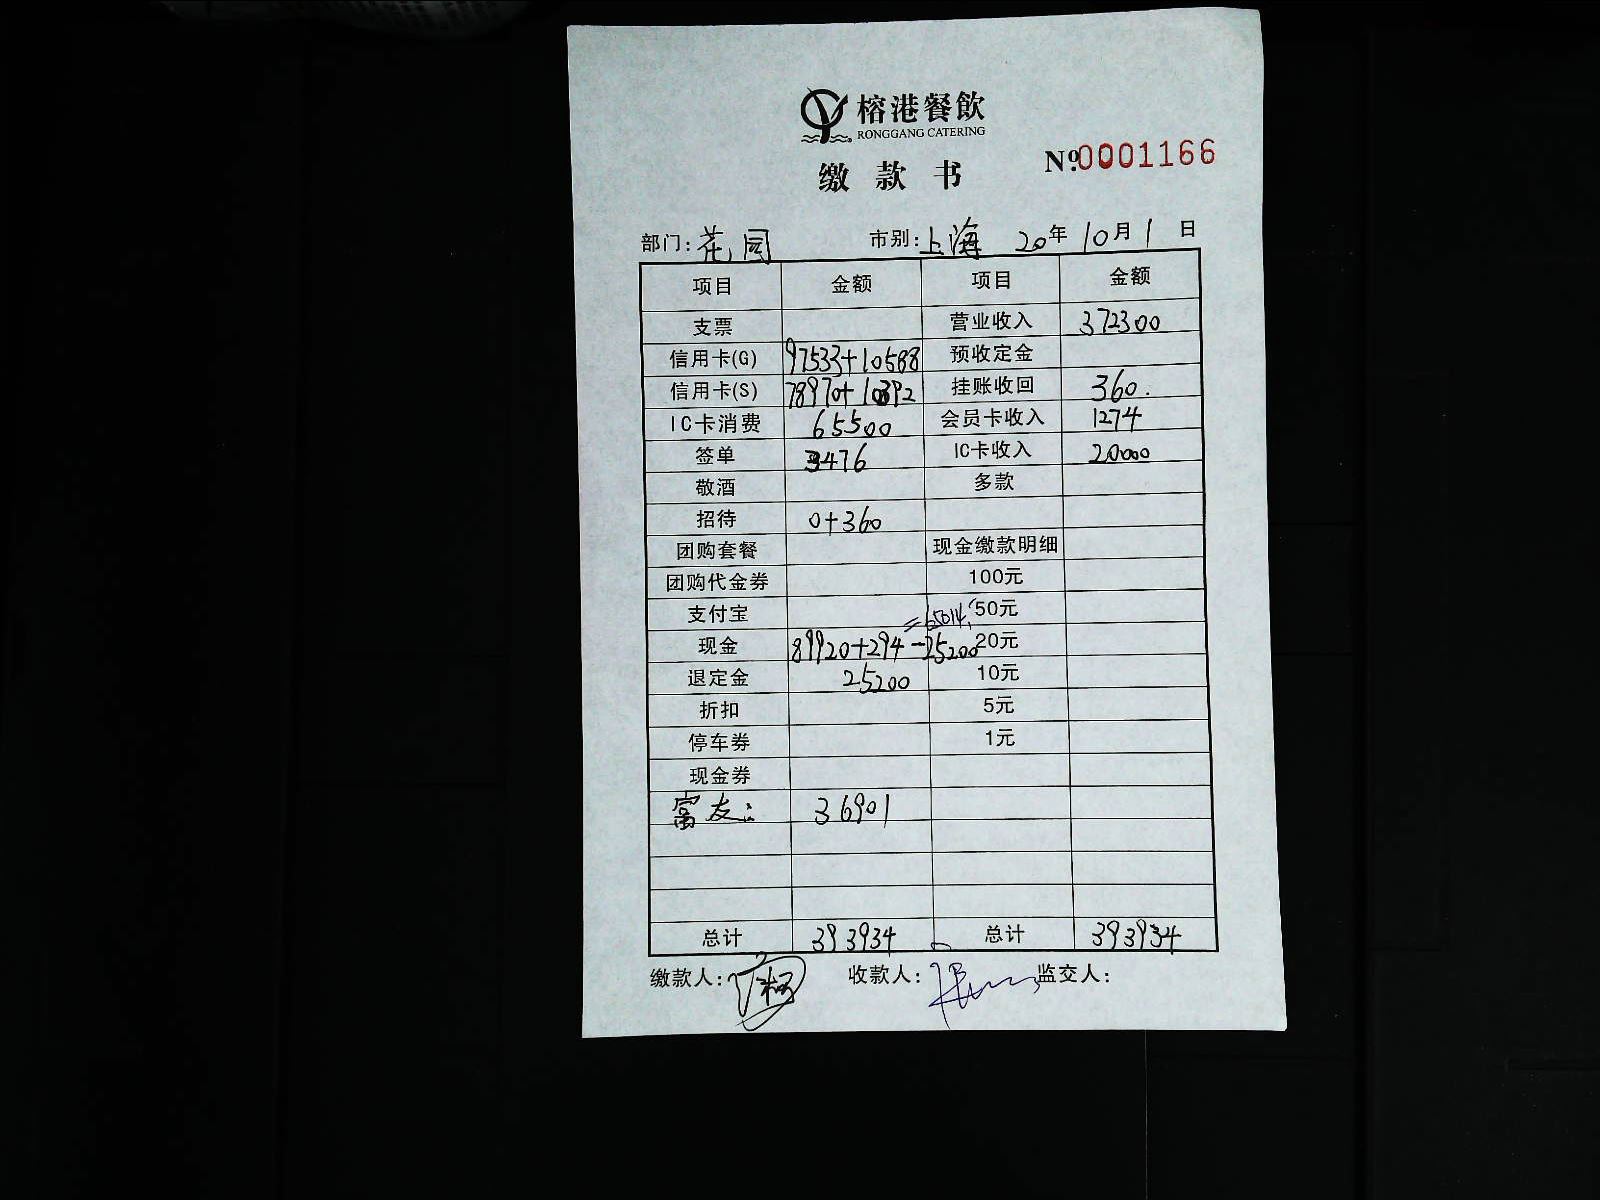 榕港餐飲
RONGGANG CATERING
缴款书 No.0001166
部门:花园 市别:上海 20年10月1日
项目 金额 项目 金额
支票 营业收入 372300
信用卡(G) 97533+10588 预收定金
信用卡(S) 78970+10392 挂账收回 360.
IC卡消费 65500 会员卡收入 1274
签单 3476 IC卡收入 20000
敬酒 多款
招待 0+360
团购套餐 现金缴款明细
团购代金券 100元
支付宝 50元
=65014
现金 89920+294-25200 20元
退定金 25200 10元
折扣 5元
停车券 1元
现金券
富友: 36901
总计 393934 总计 393934
缴款人: 收款人: 监交人: